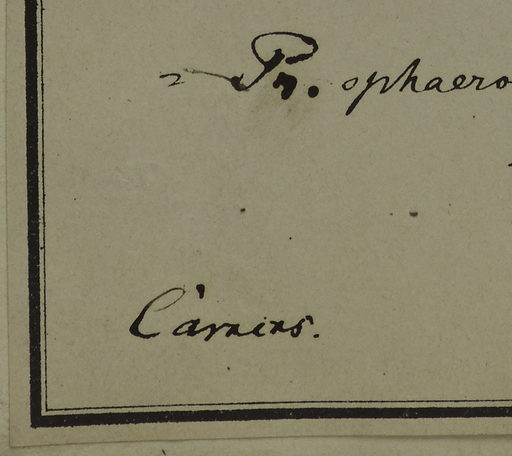 = Pr. sphaero
Carniens.